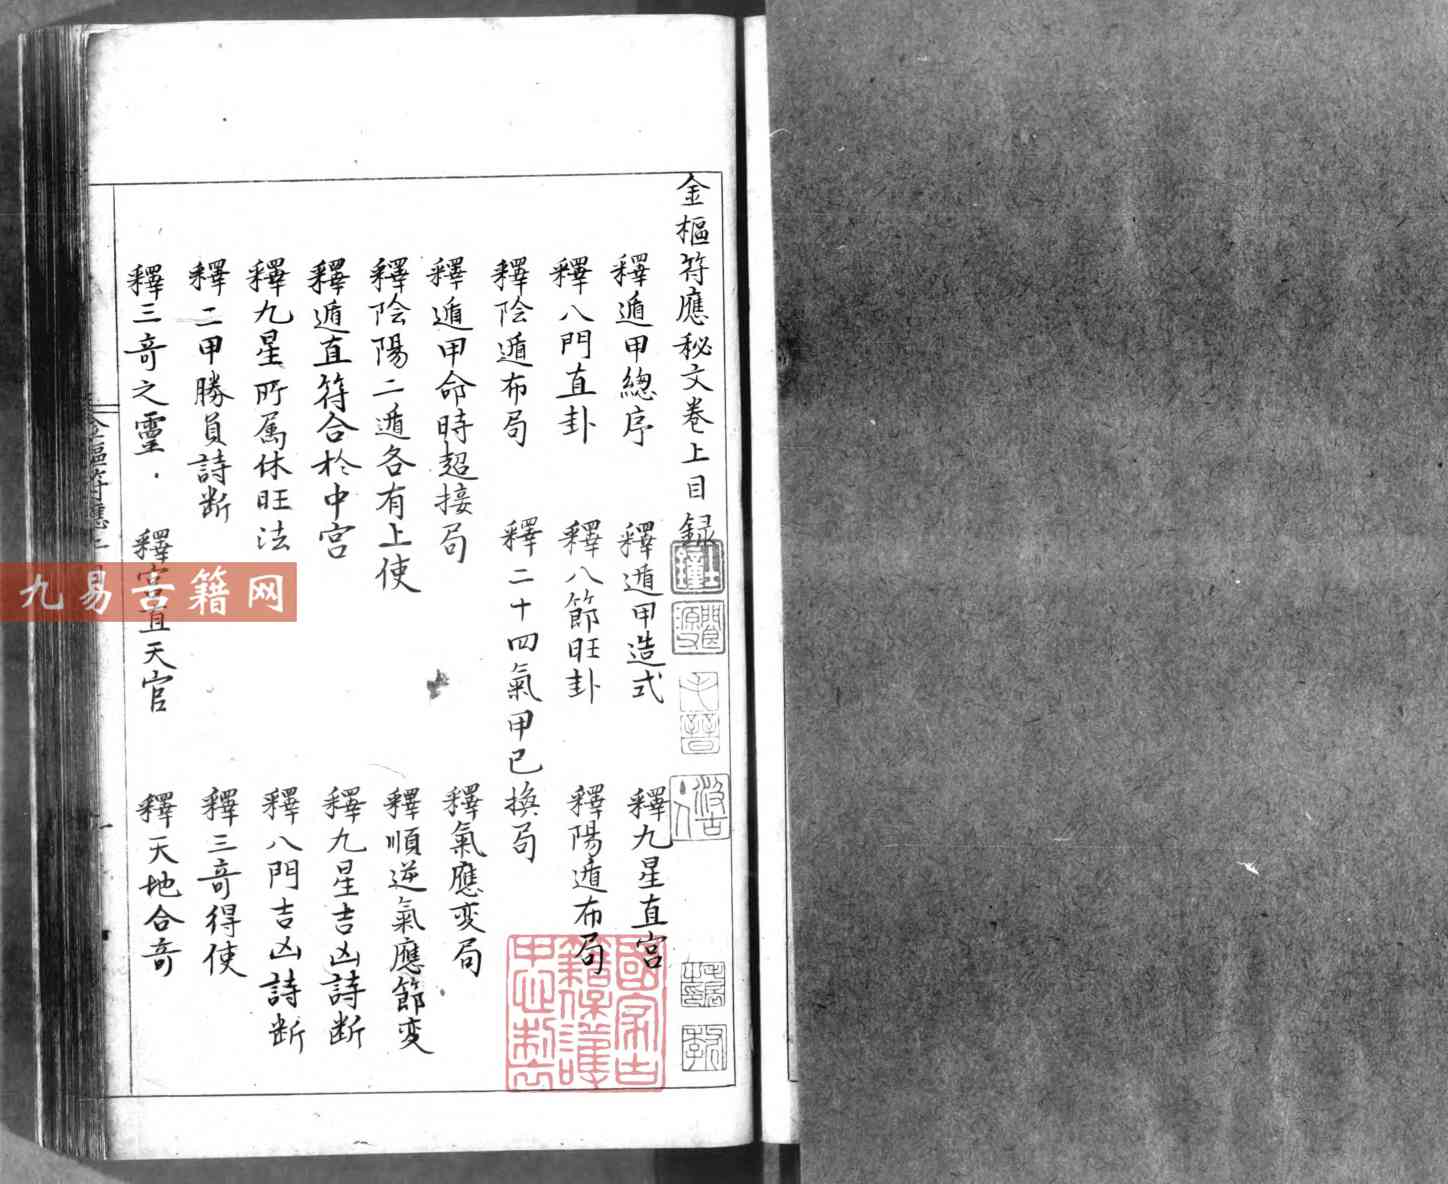 金樞符應秘文卷上目録
釋遁甲總序 釋遁甲造式 釋九星直宮
釋八門直卦 釋八節旺卦 釋陽遁布局
釋陰遁布局 釋二十四氣甲已換局
釋遁甲命時超接局 釋氣應变局
釋陰陽二遁各有上使 釋順逆氣應節变
釋遁直符合於中宮 釋九星吉凶詩断
釋九星所属休旺法 釋八門吉凶詩断
釋二甲勝負詩断 釋三竒得使
釋三竒之靈 釋宮直天官 釋天地合竒
金樞符應上
九易古籍网
國家古籍保護